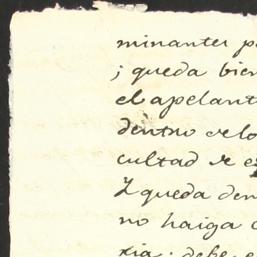 minantes p
; queda bien
el apelant
dentro de lo
cultad de e
Y queda den
no haiga
xia: debe